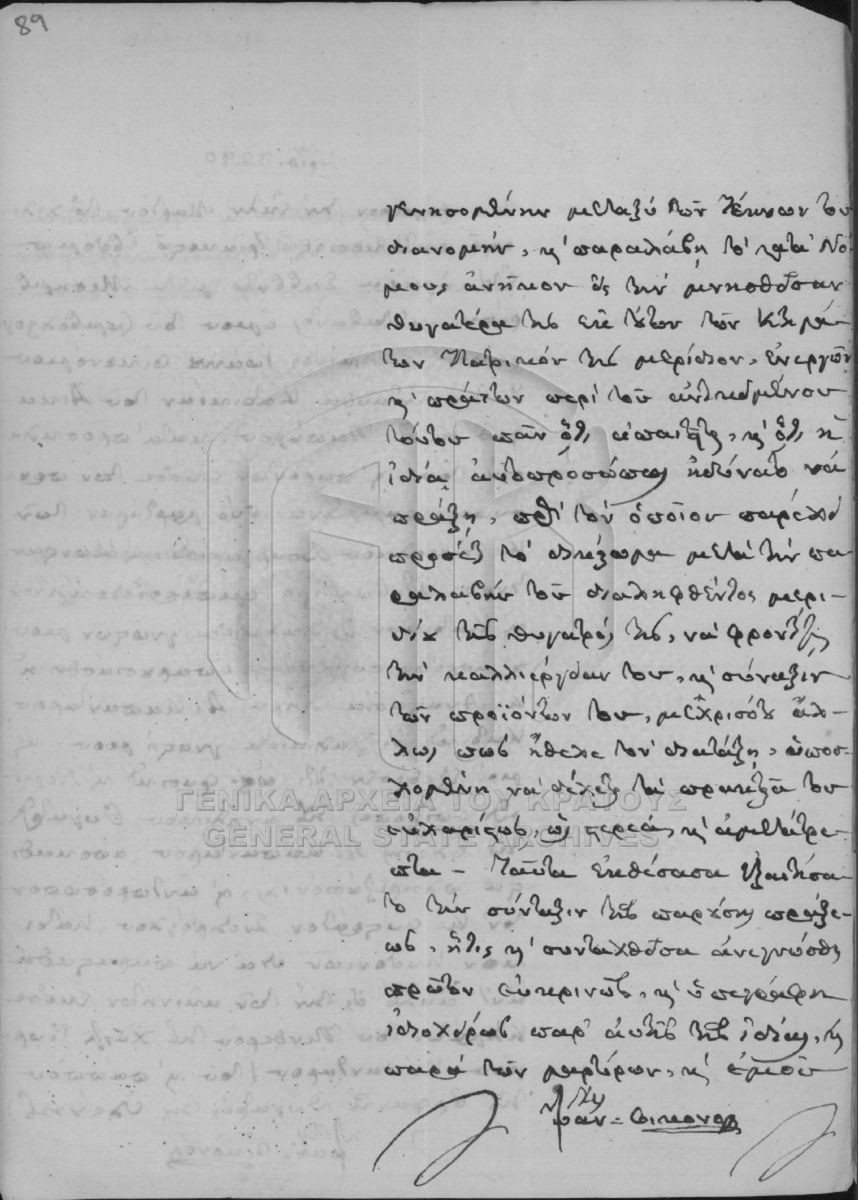 89
γενησομένην μεταξύ τῶν τέκνων του
διανομήν, κ' παραλάβη τὸ κατὰ Νό
μους ἀνῆκον εἰς τὴν μνησθεῖσαν
θυγατέρα της ἐκ τῶν κτημά
των πατρικόν της μερίδιον, ἐνεργῶν
κ' πράττων περὶ τοῦ ἀντικειμένου
τούτου πᾶν ὅ,τι ἀπαιτεῖται, κ' ὅ,τι ἡ
ἰδία αὐτοπροσώπως ἠδύνατο νὰ
πράξη, πρὸς τὸν ὁποῖον παρέχει
προσέτι τὸ δικαίωμα μετὰ τὴν πα
ραλαβὴν τοῦ διαληφθέντος μερι-
δίου τῆς θυγατρός της, νὰ φροντίζη
τὴν καλλιέργειαν του, κ' σύναξιν
τῶν προϊόντων του, μέχρισότου ἄλ-
λως πως ἤθελε τὸν διατάξη, ὑποσ
χομένη νὰ δέχεται τὰ πρακτέα του
εὐχαρίστως, ὡς στερεά, κ' ἀμετάτρε-
πτα – Ταῦτα ἐκθέσασα ἐξαιτήσα
το τὴν σύνταξιν τῆς παρούσης πράξε-
ως, ἥτις κ' συνταχθεῖσα ἀνεγνώσθη
πρῶτον εὐκρινῶς, κ' ὑπεγράφη
ἰδιοχείρως παρ' αὐτῆς τῆς ἰδίας, κ'
παρὰ τῶν μαρτύρων, κ' ἐμοῦ
ΓΕΝΙΚΑ ΑΡΧΕΙΑ ΤΟΥ ΚΡΑΤΟΥΣ
GENERAL STATE ARCHIVES